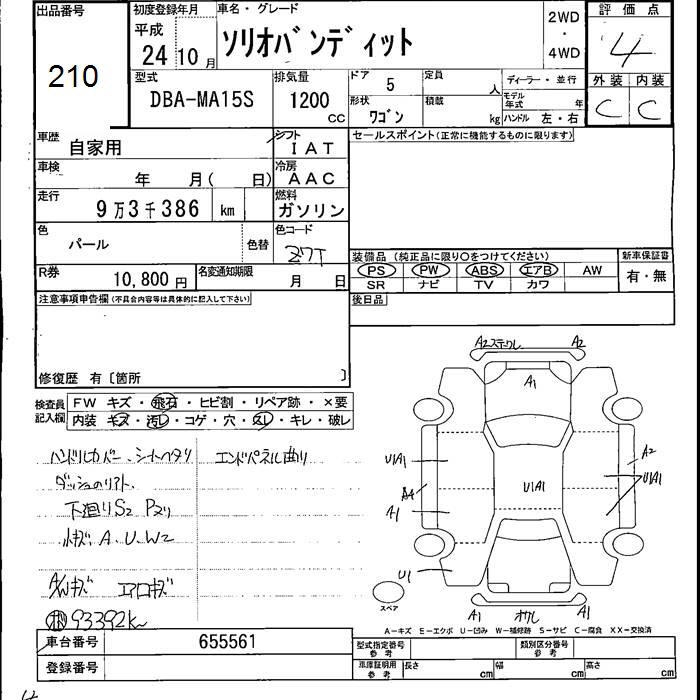 出品番号
210
初度登録年月
平成
24 10 月
車名・グレード
ソリオバンディット
2WD
・
4WD
評価点
4
外装 内装
C C
型式
DBA-MA15S
排気量
1200
CC
ドア 5
定員 人
ディーラー・並行
形状
ワゴン
積載 kg
モデル年式 年
ハンドル 左・右
車歴
自家用
シフト
IAT
セールスポイント(正常に機能するものに限ります)
車検
年 月( 日)
冷房
AAC
走行
9万3千386 km
燃料
ガソリン
色
パール
色替
色コード
Z7T
装備品 (純正品に限り○をつけてください)
新車保証書
PS PW ABS エアB AW
SR ナビ TV カワ
有・無
R券
10,800 円
名変通知期限
月 日
後日品
注意事項申告欄(不具合内容等は具体的に記入して下さい)
修復歴 有〔箇所 〕
検査員記入欄
FW キズ・飛石・ヒビ割・リペア跡・×要
内装 キズ・汚レ・コゲ・穴・スレ・キレ・破レ
ハンドルカバー、シートヘタリ
エンドパネル曲り
下廻りS2
小キズ A、U、W2
A/Wキズ エアロキズ
93392k
A2 A2
A1
U1A1
A2
U1A1
U1A1
A4
A1
U1
スペア
A1 A1
A-キズ E-エクボ U-凹み W-補修跡 S-サビ C-腐食 XX-交換済
車台番号
655561
登録番号
型式指定番号
参考
類別区分番号
参考
車庫証明用
参考
長さ cm
幅 cm
高さ cm